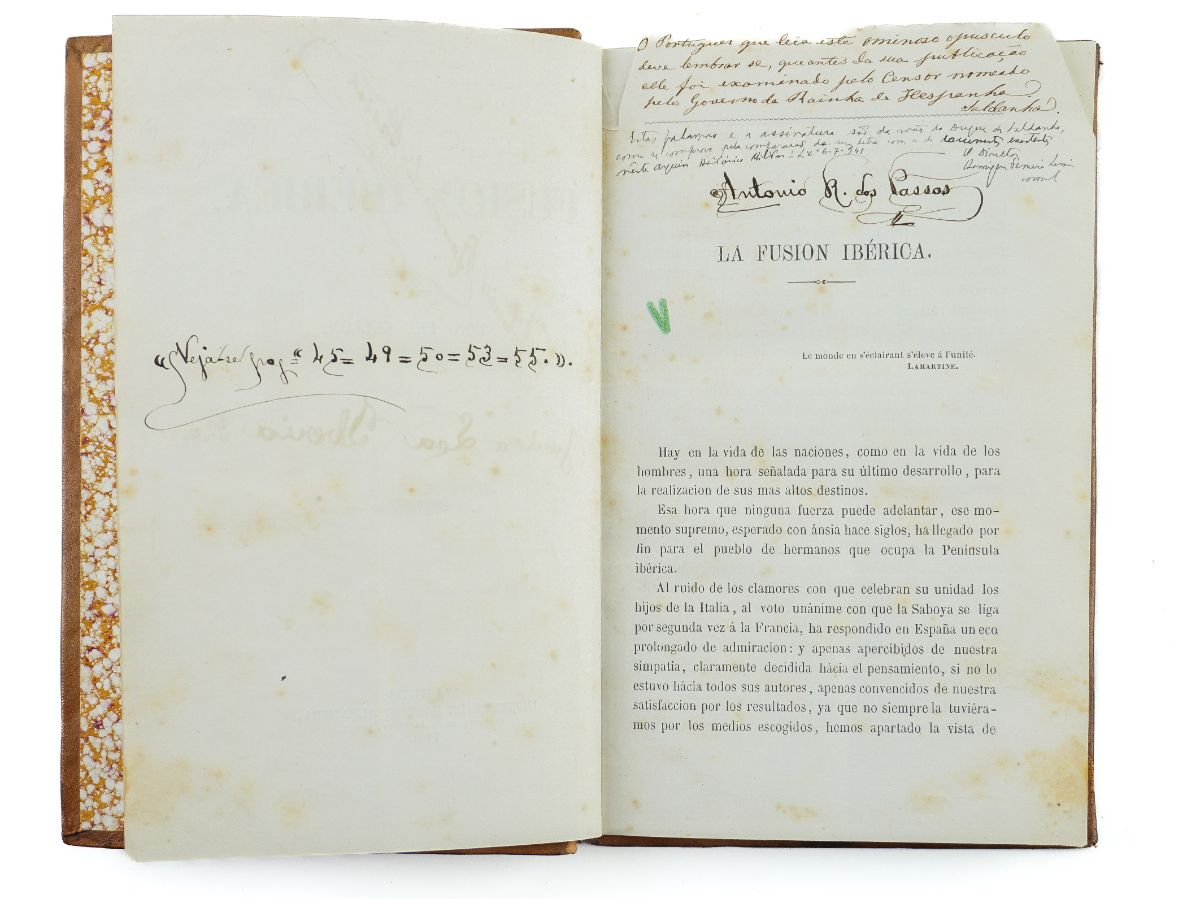 «Vejá-se pag.as 45= 49=50=53=55.».
O Portuguez que leia este ominoso opusculo
deve lembrar se, que antes da sua publicação
elle foi examinado pelo Censor nomeado
pelo Governo da Rainha de Hespanha.
Saldanha
Estas palavras e a assinatura são da mão do Duque de Saldanha,
como se comprova pela comparação da sua letra com a de documentos existentes
neste Arquivo Histórico Militar
O Director
Antonio R. dos Passos
LA FUSION IBÉRICA.
Le monde en s'éclairant s'éleve á l'unité.
LAMARTINE.
Hay en la vida de las naciones, como en la vida de los
hombres, una hora señalada para su último desarrollo, para
la realizacion de sus mas altos destinos.
Esa hora que ninguna fuerza puede adelantar, ese mo-
mento supremo, esperado con ánsia hace siglos, ha llegado por
fin para el pueblo de hermanos que ocupa la Península
ibérica.
Al ruido de los clamores con que celebran su unidad los
hijos de la Italia, al voto unánime con que la Saboya se liga
por segunda vez á la Francia, ha respondido en España un eco
prolongado de admiracion: y apenas apercibidos de nuestra
simpatía, claramente decidida hácia el pensamiento, si no lo
estuvo hácia todos sus autores, apenas convencidos de nuestra
satisfaccion por los resultados, ya que no siempre la tuviéra-
mos por los medios escogidos, hemos apartado la vista de